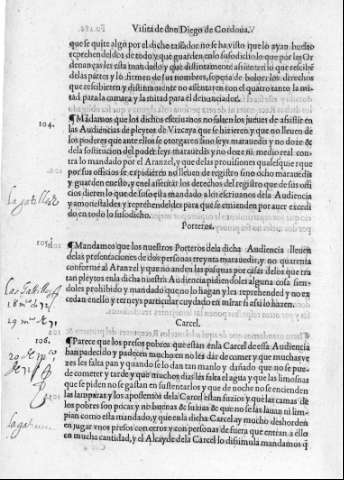 Visita de don Diego de Cordoua.
que se quite algo por el dicho tassador no se ha visto que lo ayan buelto
reprehendelos de todo y que guarden en lo susodicho lo que por las Or
denanças les esta mandado y que distintamente assienten lo que resciben
de las partes y lo firmen de sus nombres, so pena de boluer los derechos
que rescibieren y distintamente no assentaren con el quatro tanto la mi-
tad para la camara y la mitad para el denunciador.
104.
¶Mãdamos que los dichos escriuanos no salten los jueues de assistir en
las Audiencias de pleytos de Vizcaya que se hizieren y que no lleuen de
los poderes que ante ellos se otorgaren sino seys marauedis y no doze &
de la sostitucion del poder seys marauedis y no doze ni medio real con-
tra lo mandado por el Aranzel, y que de las prouisiones qualesquier que
por sus officios se expidieren no lleuen de registro sino ocho marauedis
y guarden en ello, y en el assentar los derechos del registro que de sus offi
cios dieren lo que de suso esta mandado a los escriuanos dela Audiencia
y amonestaldes y reprehendeldes para que se emienden por auer excedi
do en todo lo susodicho.
Porteros.
105.
¶Mandamos que los nuestros Porteros dela dicha Audiencia lleuen
de las presentaciones de dos personas treynta marauedis, y no quarenta
conforme al Aranzel y que no anden las pasquas por casas delos que tra
tan pleytos en la dicha nuestra Audiencia pidiendoles alguna cosa sien-
doles prohibido y mandado que no lo hagan y les reprehended y no ex
cedan en ello y terneys particular cuydado en mirar si assi lo hazen.
Carcel.
106.
¶Parece que los presos pobres que estan en la Carcel de essa Audiencia
han padecido y padecen mucho en no les dar de comer y que muchas ve
zes les falta pan y quando se lo dan tan manlo y dañado que no se pue-
de comer y tarde y que muchos dias les falta el agua y que las limosnas
que se piden no se gastan en sustentarlos y que de noche no se encienden
las lamparas y los aposentos dela Carcel estan suzios y que las camas de
los pobres son pocas y no buenas & suzias & que no se las lauan ni lim-
pian como esta mandado, y que en la dicha Carcel ay mucho deshorden
en jugar vnos presos con otros y con personas de fuera que entran a ello
en mucha cantidad, y el Alcayde dela Carcel lo dissimula mandamos q̃